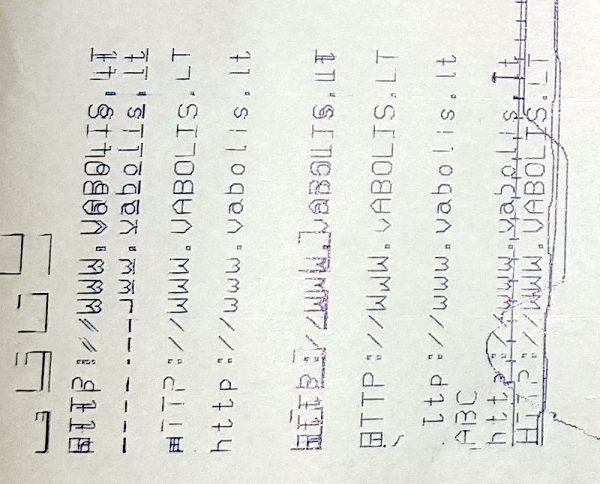 HTTP://WWW.VABOLIS.LT
www.vabolis.lt
HTTP://WWW.VABOLIS.LT
http://www.vabolis.lt
HTTP://WWW.VABOLIS.LT
HTTP://WWW.VABOLIS.LT
ttp://www.vabolis.lt
ABC
http://www.vabolis.lt
HTTP://WWW.VABOLIS.LT